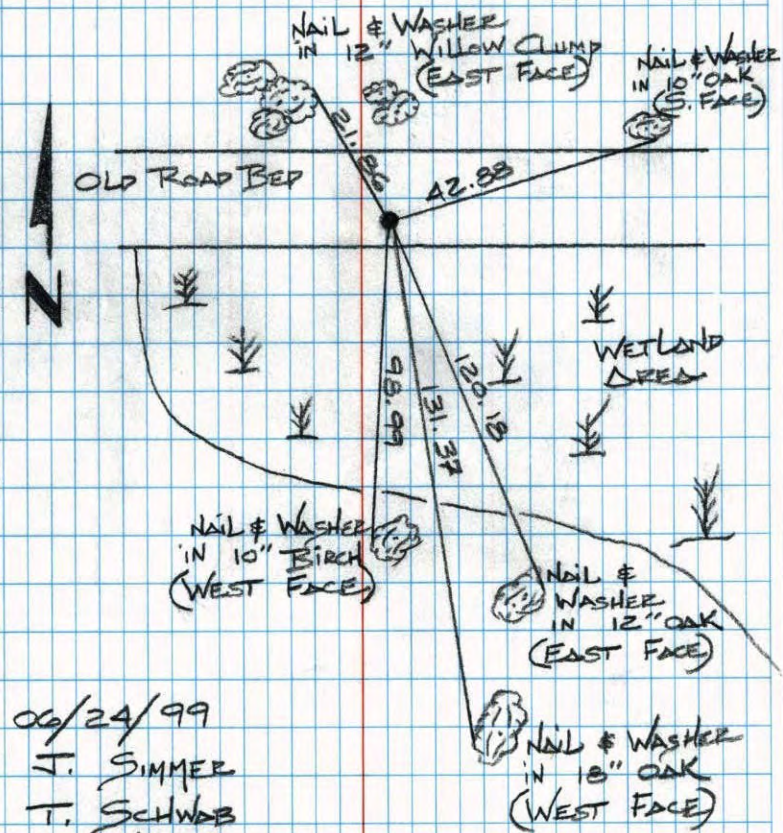 NAIL & WASHER
IN 12" WILLOW CLUMP
(EAST FACE)
NAIL & WASHER
IN 10" OAK
(S. FACE)
21.86
42.88
OLD ROAD BED
N
WETLAND
AREA
98.99
131.37
120.18
NAIL & WASHER
IN 10" BIRCH
(WEST FACE)
NAIL &
WASHER
IN 12" OAK
(EAST FACE)
NAIL & WASHER
IN 18" OAK
(WEST FACE)
06/24/99
J. SIMMER
T. SCHWAB